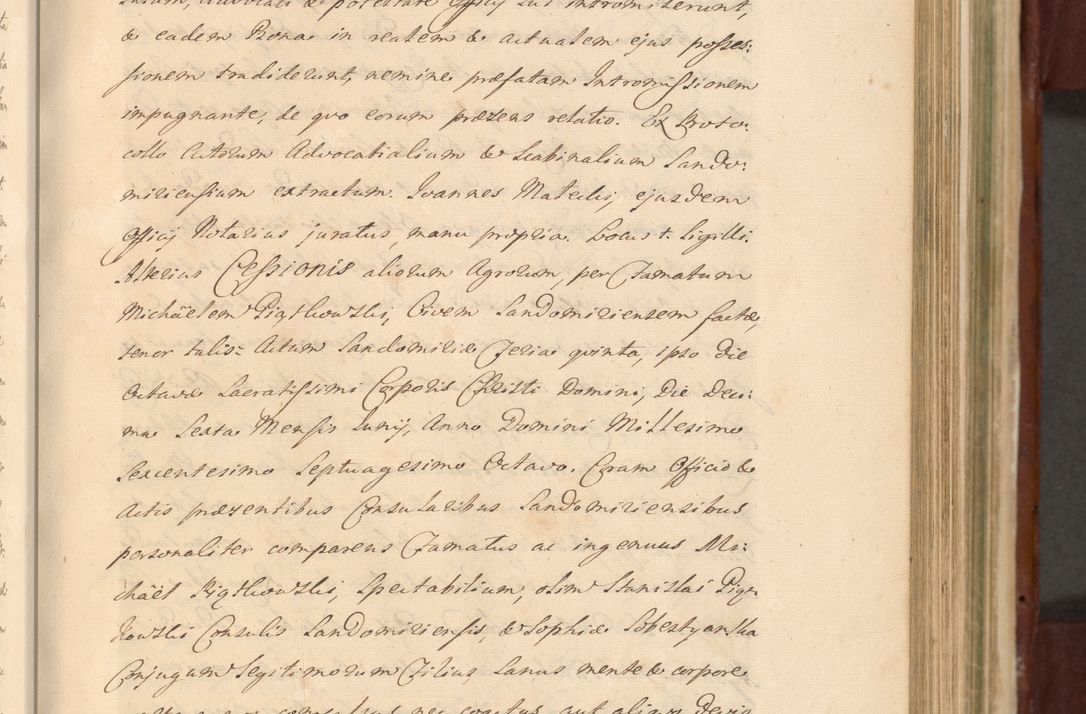 & eadem Bona in realem & actualem ejus posses:
sionem tradiderunt, nemine præfatam Intromissionem
impugnante, de quo eorum præsens relatio. Ex Proto:
collo Actorum Advocatialium & Scabinalium Sando:
miriensium extractum. Joannes Matecki, ejusdem
Officij Notarius juratus, manu propria. Locus t. Sigilli.
Alterius Cessionis aliorum Agrorum, per Famatum
Michäelem Piątkowski, Civem Sandomiriensem factæ,
tenor talis: Actum Sandomiriæ Feria quinta, ipso Die
Octavæ Sacratissimi Corporis Christi Domini, Die Deci:
ma Sexta Mensis Junij, Anno Domini Millesimo
Sexcentesimo Septuagesimo Octavo. Coram Officio &
Actis præsentibus Consularibus Sandomiriensibus
personaliter comparens Famatus ac ingenuus Mi:
chäel Piątkowski, Spectabilium, olim Stanislai Piąt:
kowski Consulis Sandomiriensis, & Sophiæ Sobestyanska
Conjugum Legitimorum Filius, Sanus mente & corpore